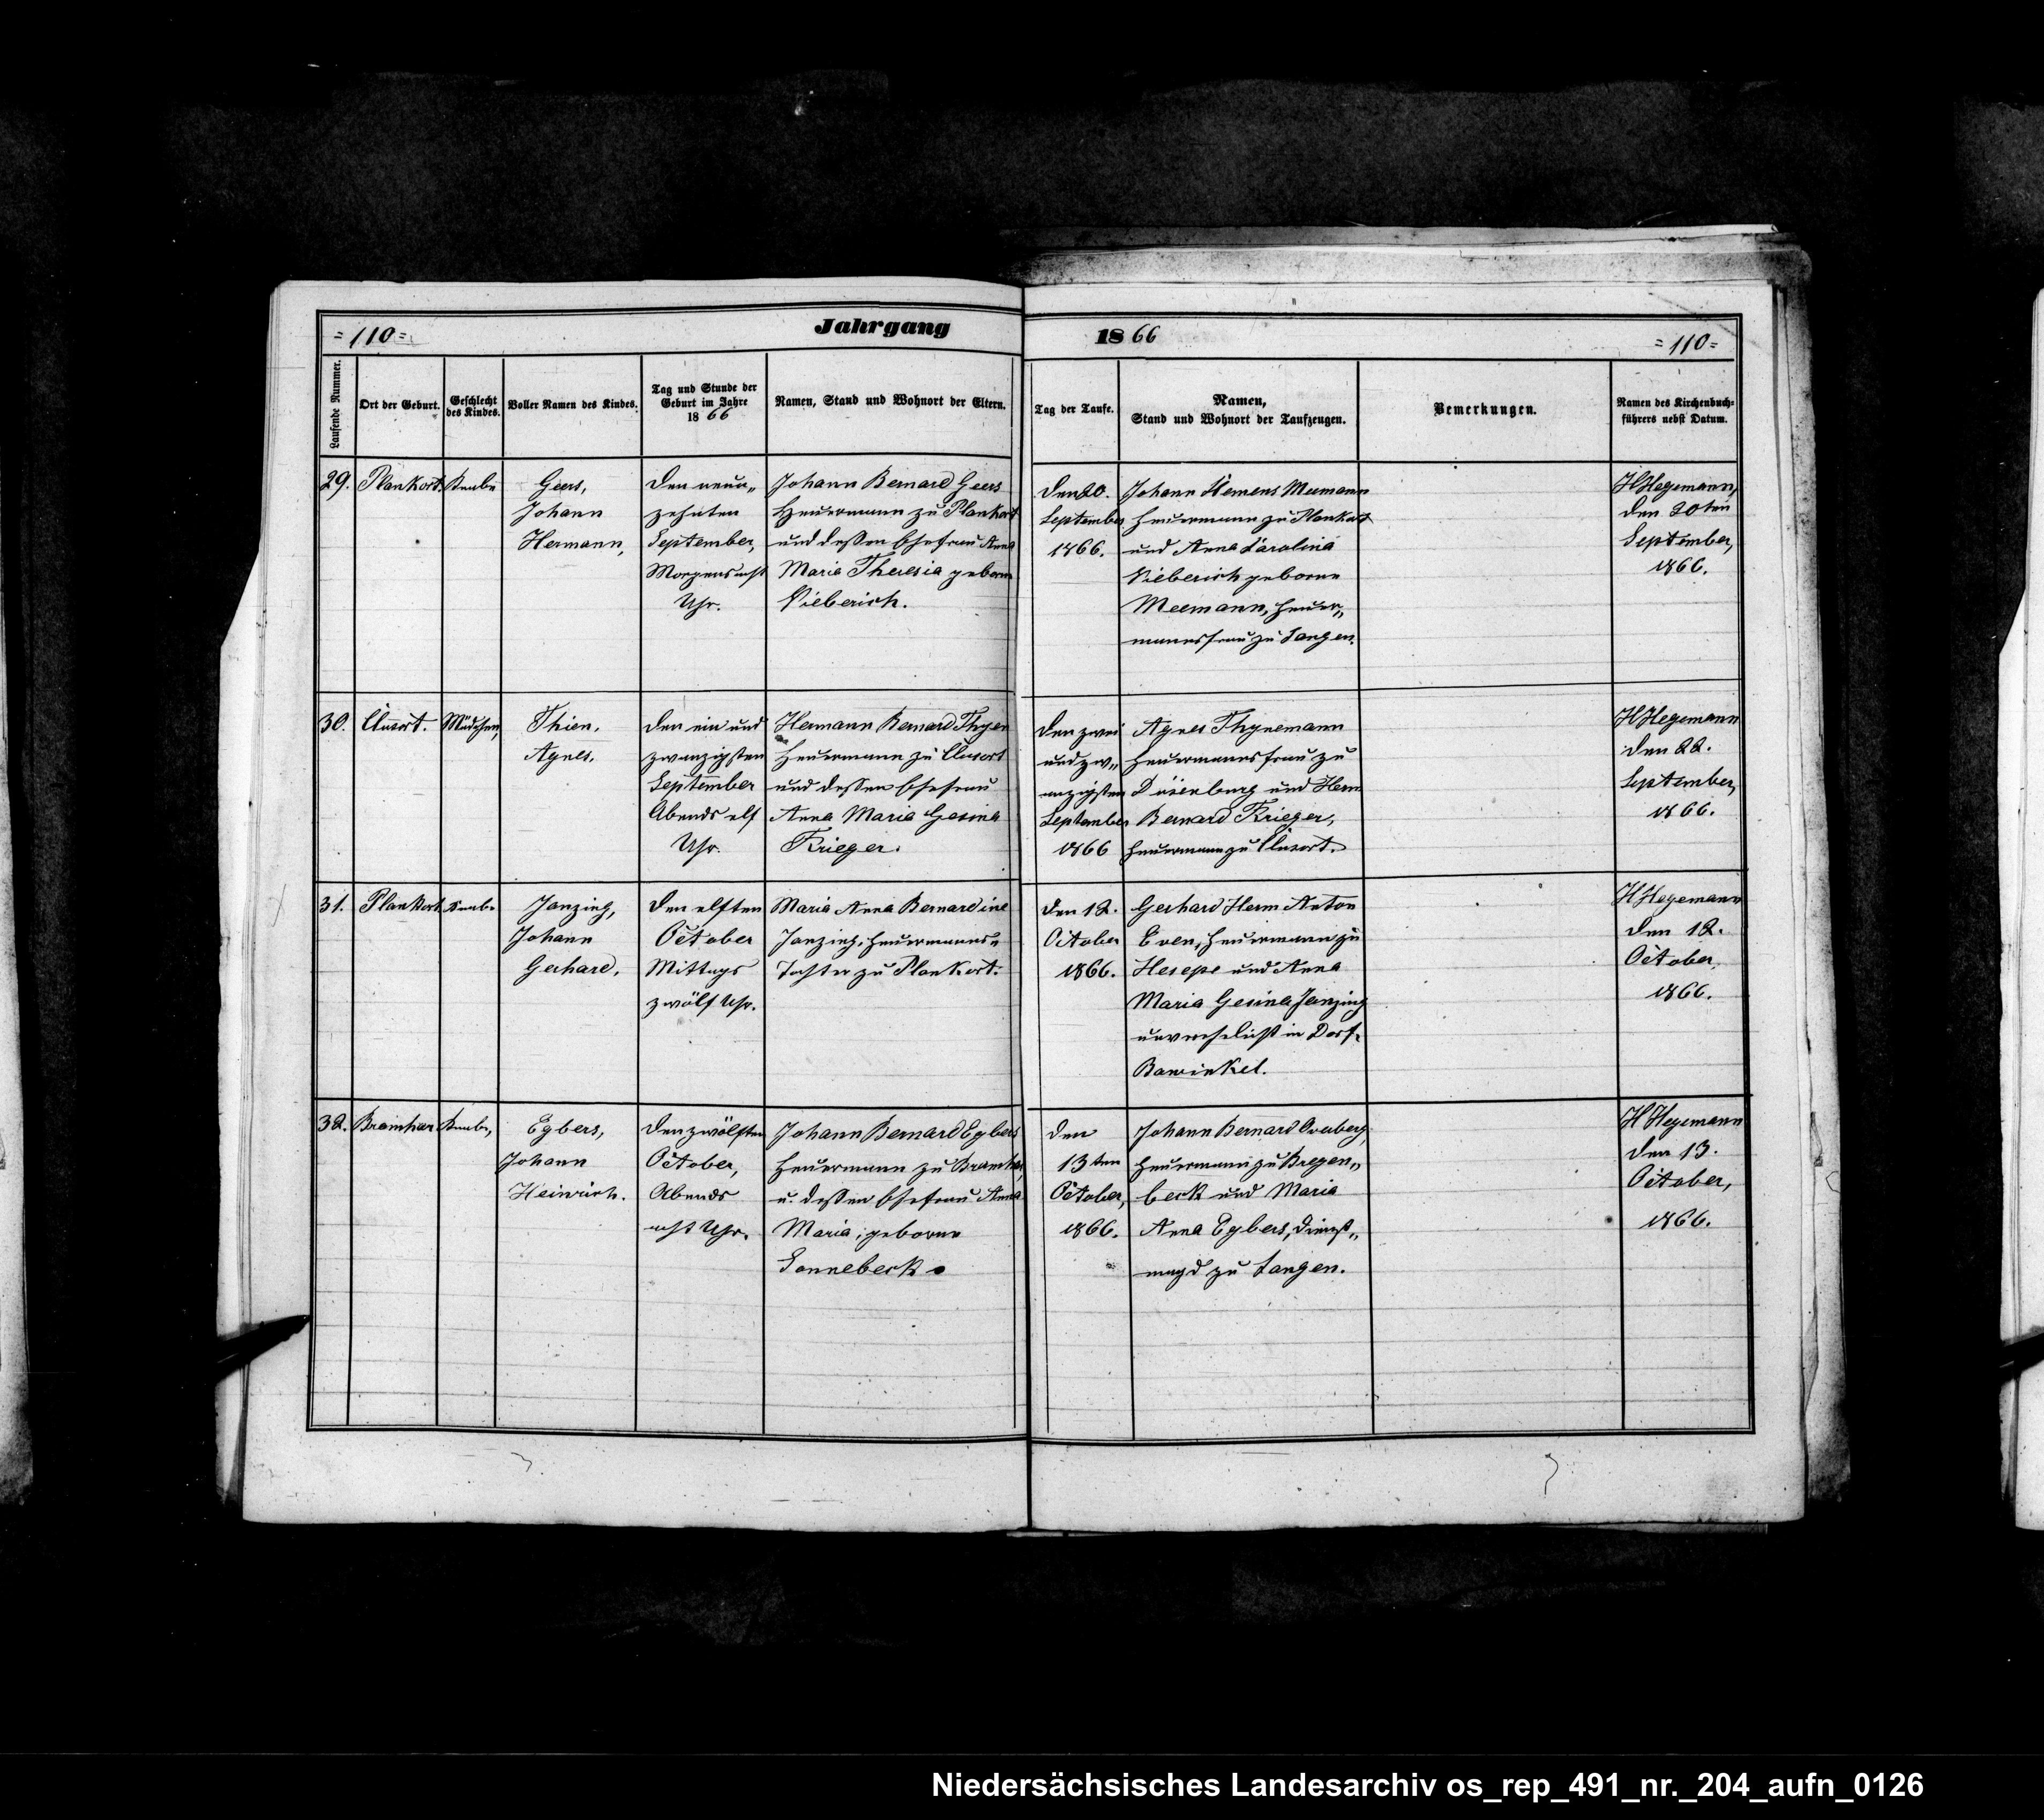 =110=
Jahrgang
1866
=110=
Laufende Nummer.
Ort der Geburt.
Geschlecht
des Kindes.
Voller Namen des Kindes.
Tag und Stunde der
Geburt im Jahre
1866
Namen, Stand und Wohnort der Eltern.
Tag der Taufe.
Namen,
Stand und Wohnort der Taufzeugen.
Bemerkungen.
Namen des Kirchenbuch=
führers nebst Datum.
29.
Plankort.
Knabe
Geers,
Johann
Hermann,
Den neun„
zehnten
September,
Morgens acht
Uhr.
Johann Bernard Geers
Heuermann zu Plankort
und dessen Ehefrau Anna
Maria Theresia geborne
Vieberich.
Den 20.
September
1866.
Johann Klemens Meemann
Heuermann zu Plankort
und Anna Karolina
Vieberich geborne
Meemann, Heuer„
mannsfrau zu Langen.
HHegemann,
den 20ten
September,
1866.
30.
Clusort.
Mädchen,
Thien,
Agnes.
Den ein und
zwanzigsten
September
Abends elf
Uhr.
Hermann Bernard Thyen
Heuermann zu Clusort
und dessen Ehefrau
Anna Maria Gesina
Krieger.
Den zwei
und zw„
anzigsten
September
1866
Agnes Thynemann
Heuermannsfrau zu
Düsenburg und Herm
Bernard Krieger,
Heuermann zu Clusort.
HHegemann
den 22.
September,
1866.
31.
Plankort
Knabe
Janzing,
Johann
Gerhard.
Den elften
October
Mittags
zwölf Uhr.
Maria Anna Bernardine
Janzing, Heuermanns„
Tochter zu Plankort.
Den 12.
October
1866.
Gerhard Herm Anton
Even, Heuermann zu
Hesepe und Anna
Maria Gesina Janzing
unverehelicht in Dorf„
Bawinkel.
HHegemann
den 12.
October,
1866.
32.
Bramhar
Knabe,
Egbers,
Johann
Heinrich.
Den zwölften
October,
Abends
acht Uhr.
Johann Bernard Egbers
Heuermann zu Bramhar,
u. dessen Ehefrau Anna
Maria, geborne
Sonnebeck.
Den
13ten
October,
1866.
Johann Bernard Overberg,
Heuermann zu Bregen„
beck und Maria
Anna Egbers, Dienst„
magd zu Langen.
HHegemann
den 13.
October,
1866.
Niedersächsisches Landesarchiv os_rep_491_nr._204_aufn_0126